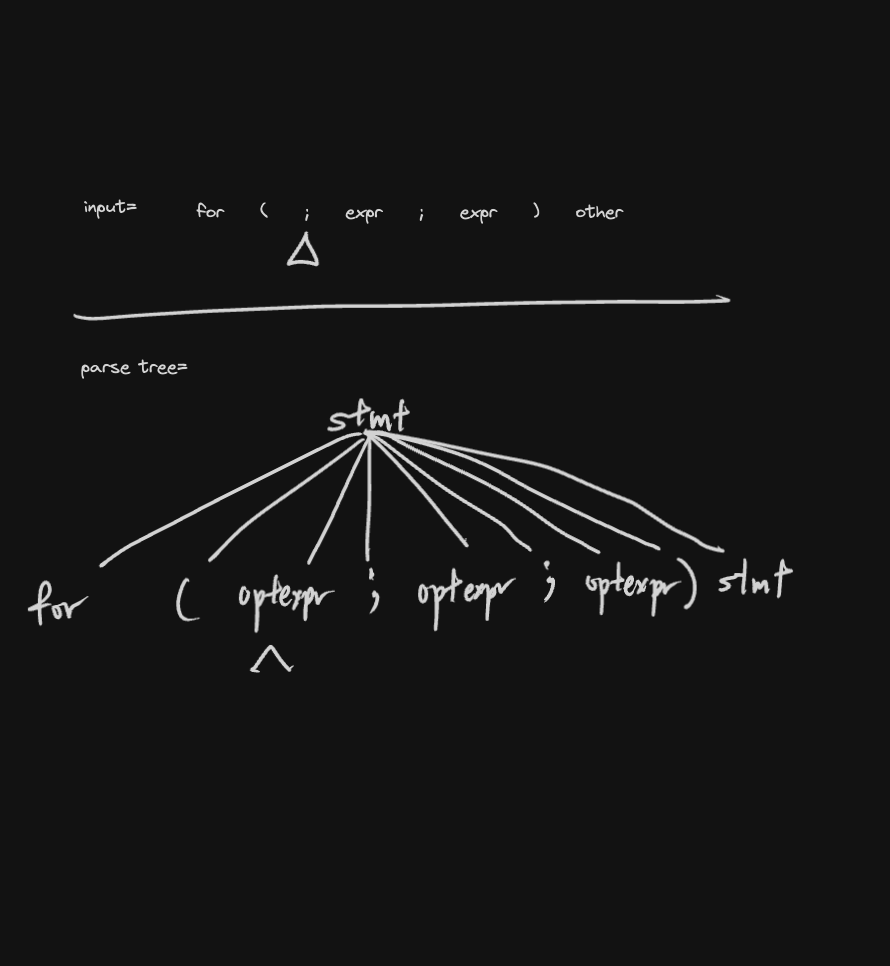 input= for ( ; expr ; expr ) other
parse tree=
stmt
for ( optexpr ; optexpr ; optexpr ) stmt